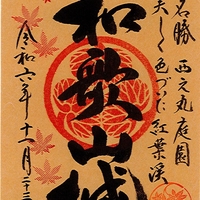 名勝 西之丸庭園
美しく 色づいた 紅葉渓
和歌山城
令和六年十一月二十三